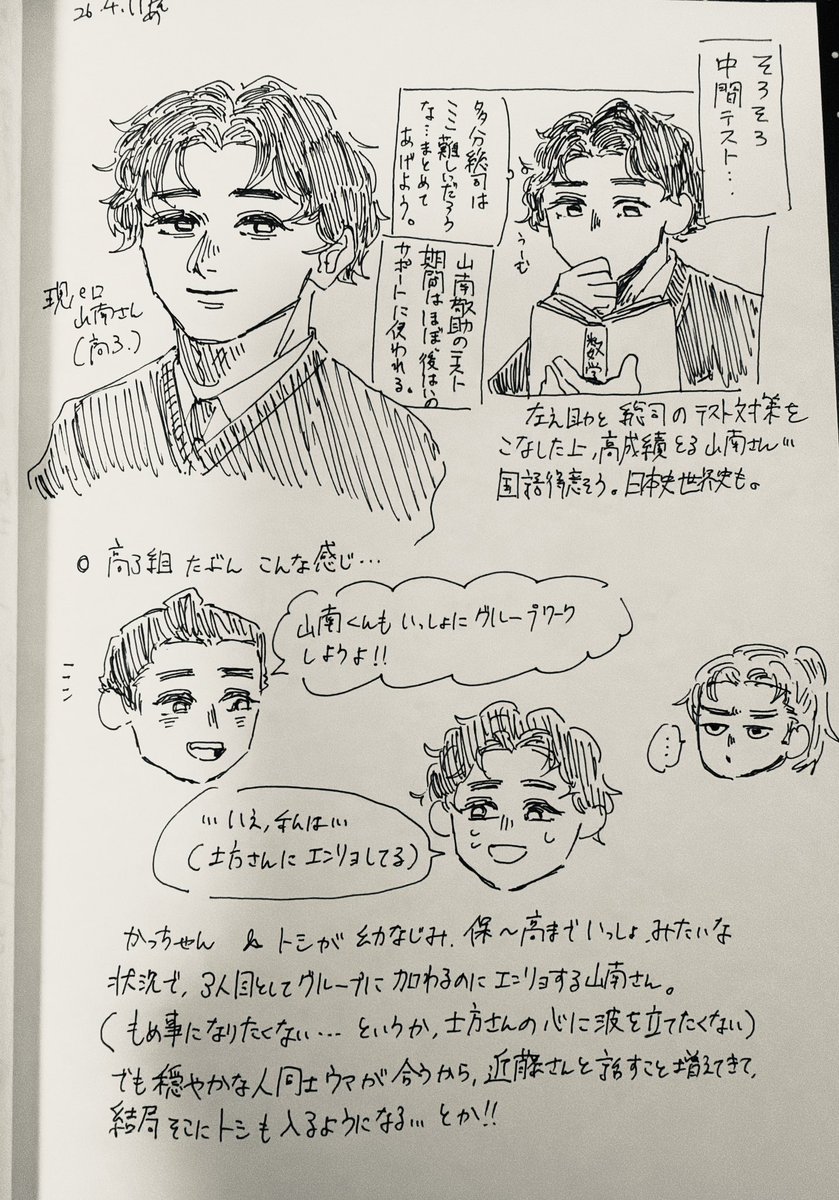 26.4.11
そろそろ
中間テスト…
多分総司は
ここ難しいだろう
な…まとめて
あげよう。
うーむ
数学
山南敬助のテスト
期間はほぼ、後はいの
サポートに使われる。
現パロ
山南さん
(高3.)
左之助と総司のテスト対策を
こなした上,高成績とる山南さん…
国語得意そう。日本史世界史も。
○高3組 たぶん こんな感じ…
山南くんも いっしょに グループワーク
しようよ!!
…
…いえ,私は…
(土方さんに エンリョしてる)
かっちゃん & トシが 幼なじみ. 保~高まで いっしょ,みたいな
状況で, 3人目としてグループに加わるのに エンリョする山南さん。
(もめ事になりたくない… というか,土方さんの心に波を立てたくない)
でも穏やかな人同士ウマが合うから,近藤さんと話すこと増えてきて,
結局 そこに トシも 入るようになる… とか!!